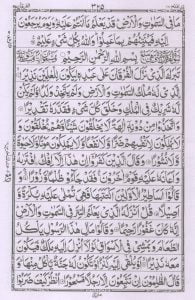 ۳۲۵
مَا فِي السَّمٰوٰتِ وَالْاَرْضِ قَدْ يَعْلَمُ مَاۤ اَنْتُمْ عَلَيْهِ وَيَوْمَ يُرْجَعُوْنَ
اِلَيْهِ فَيُنَبِّئُهُمْ بِمَا عَمِلُوْا وَاللّٰهُ بِكُلِّ شَيْءٍ عَلِيْمٌ
بِسْمِ اللّٰهِ الرَّحْمٰنِ الرَّحِيْمِ
تَبٰرَكَ الَّذِيْ نَزَّلَ الْفُرْقَانَ عَلٰى عَبْدِهٖ لِيَكُوْنَ لِلْعٰلَمِيْنَ نَذِيْرًا
الَّذِيْ لَهٗ مُلْكُ السَّمٰوٰتِ وَالْاَرْضِ وَلَمْ يَتَّخِذْ وَلَدًا وَّلَمْ يَكُنْ
لَّهٗ شَرِيْكٌ فِي الْمُلْكِ وَخَلَقَ كُلَّ شَيْءٍ فَقَدَّرَهٗ تَقْدِيْرًا
وَاتَّخَذُوْا مِنْ دُوْنِهٖۤ اٰلِهَةً لَّا يَخْلُقُوْنَ شَيْئًا وَّهُمْ يُخْلَقُوْنَ وَلَا
يَمْلِكُوْنَ لِاَنْفُسِهِمْ ضَرًّا وَّلَا نَفْعًا وَّلَا يَمْلِكُوْنَ مَوْتًا وَّلَا حَيٰوةً
وَّلَا نُشُوْرًا وَقَالَ الَّذِيْنَ كَفَرُوْۤا اِنْ هٰذَاۤ اِلَّاۤ اِفْكٌ افْتَرٰىهُ
وَاَعَانَهٗ عَلَيْهِ قَوْمٌ اٰخَرُوْنَ فَقَدْ جَآءُوْ ظُلْمًا وَّزُوْرًا
وَقَالُوْۤا اَسَاطِيْرُ الْاَوَّلِيْنَ اكْتَتَبَهَا فَهِيَ تُمْلٰى عَلَيْهِ بُكْرَةً وَّ
اَصِيْلًا قُلْ اَنْزَلَهُ الَّذِيْ يَعْلَمُ السِّرَّ فِي السَّمٰوٰتِ وَالْاَرْضِ
اِنَّهٗ كَانَ غَفُوْرًا رَّحِيْمًا وَقَالُوْا مَالِ هٰذَا الرَّسُوْلِ يَاْكُلُ
الطَّعَامَ وَيَمْشِيْ فِي الْاَسْوَاقِ لَوْلَاۤ اُنْزِلَ اِلَيْهِ مَلَكٌ فَيَكُوْنَ
مَعَهٗ نَذِيْرًا اَوْ يُلْقٰۤى اِلَيْهِ كَنْزٌ اَوْ تَكُوْنُ لَهٗ جَنَّةٌ يَّاْكُلُ مِنْهَا وَ
قَالَ الظّٰلِمُوْنَ اِنْ تَتَّبِعُوْنَ اِلَّا رَجُلًا مَّسْحُوْرًا اُنْظُرْ كَيْفَ ضَرَبُوْا